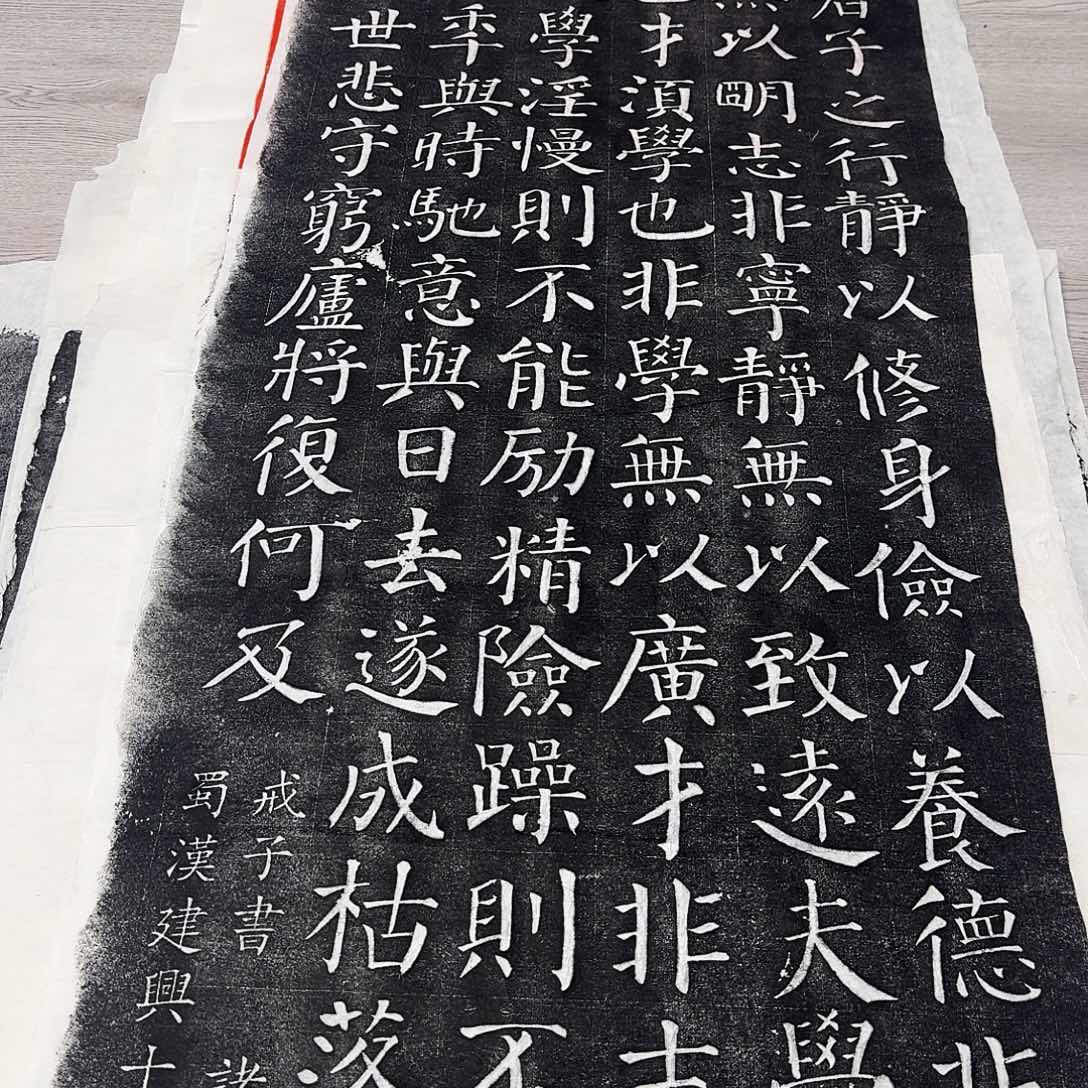 君子之行靜以修身儉以養德非
無以朙志非寧靜無以致遠夫學
也才湏學也非學無以廣才非志
學淫慢則不能励精險躁則不
秊與時馳意與日去遂成枯落
世悲守窮廬將復何及
戒子書 諸
蜀漢建興十